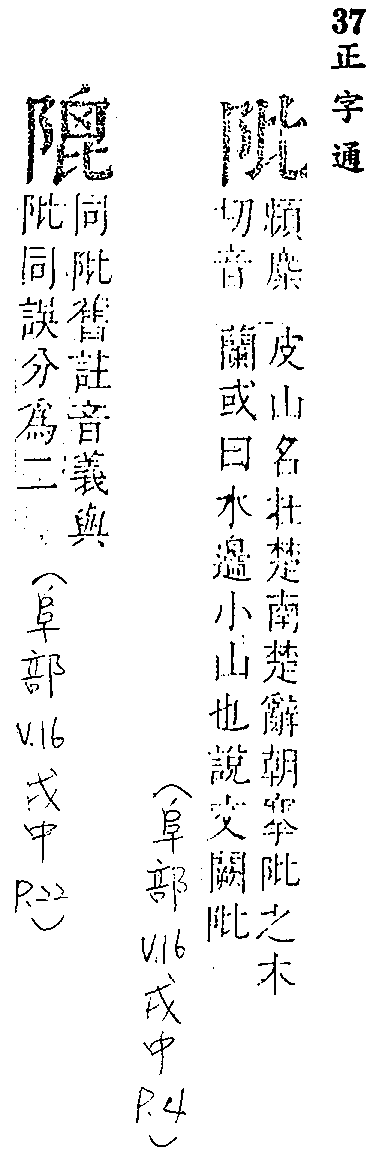 37 正字通
阰
頻糜
切音
皮山名在楚南楚辭朝搴阰之木
蘭或曰水邉小山也說文闕阰
(阜部 V.16 戌中 P.4)
同阰舊註音義與
阰同誤分為二
(阜部 V.16 戌中 P.22)